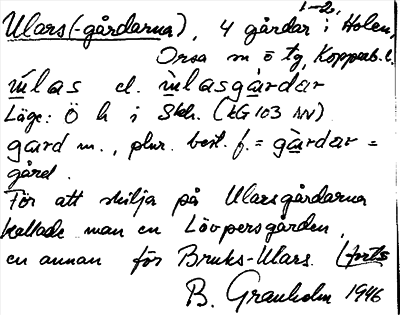 1-2.
Ulars(-gårdarna), 4 gårdar i Holen,
Orsa sn o tg, Kopparb. l.
ùlas el. ùlasgàrdar
Läge: Ö h i Skh. (kG 103 NV)
gard m., plur. best. f. = gàrdar =
gård.
För att skilja på Ularsgårdarna
kallade man en Lövpersgården,
en annan för Bruks-Ulars. (forts
B. Granholm 1946